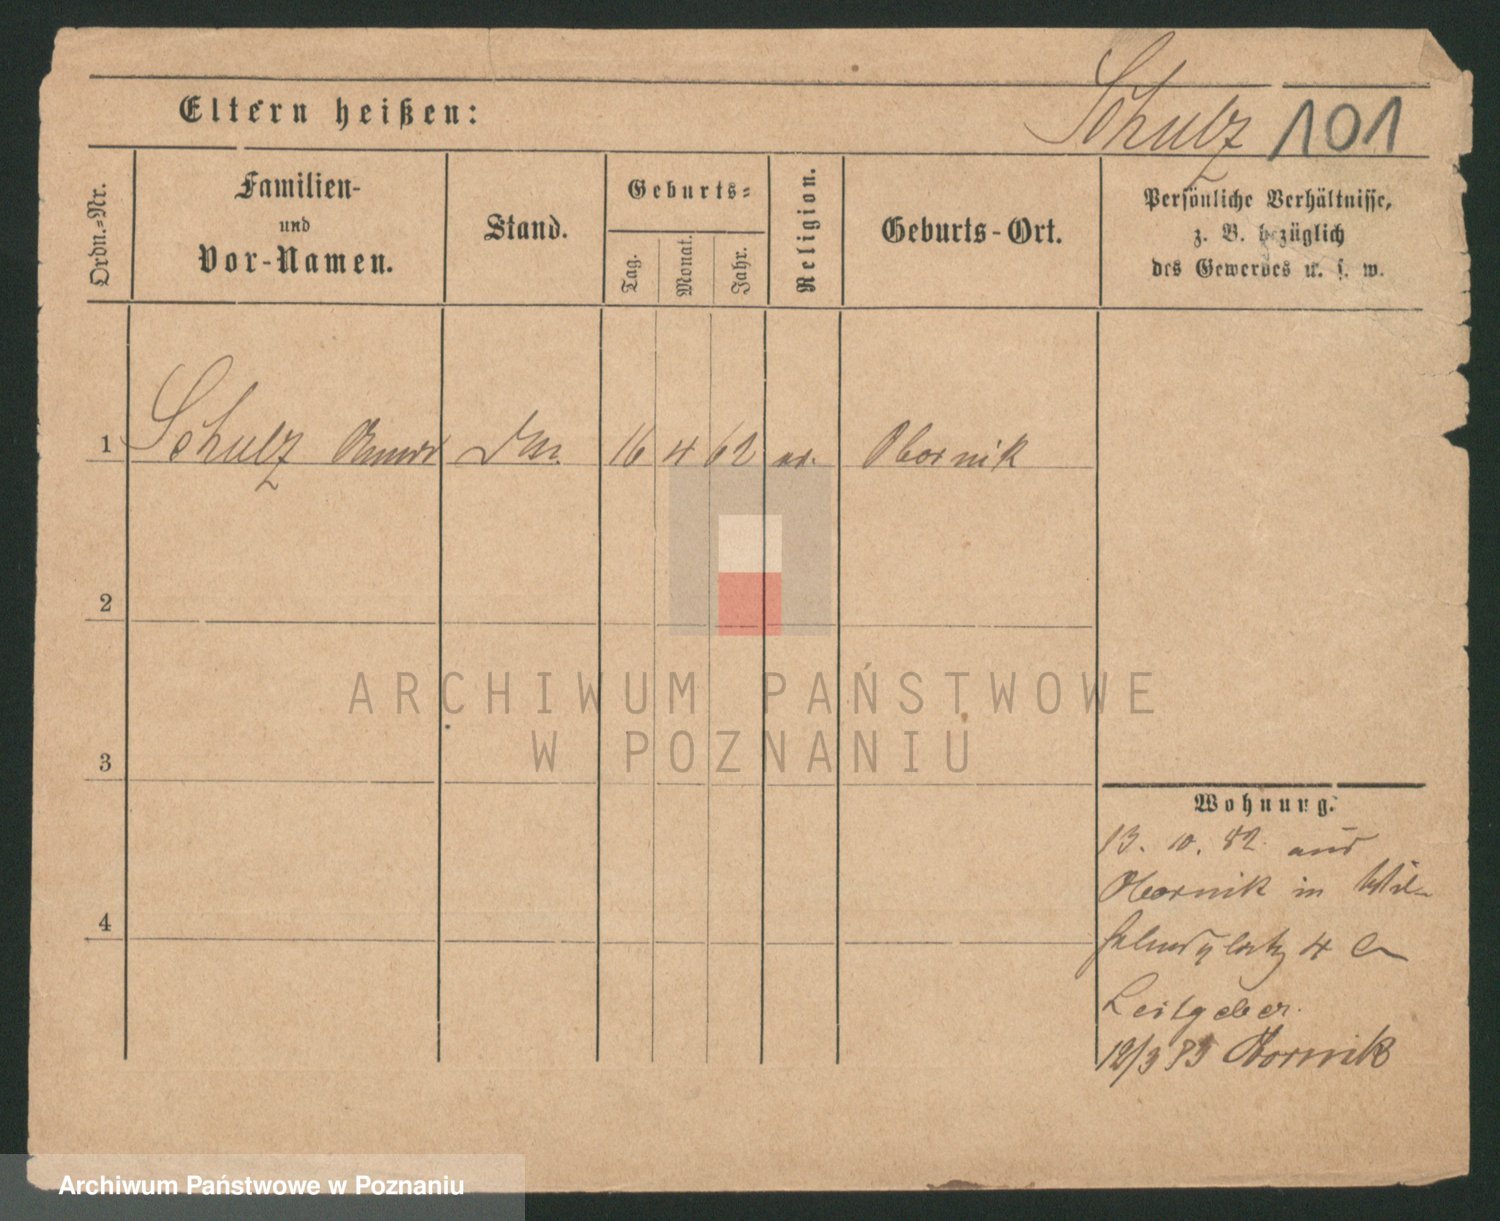 Schulz 101
Eltern heißen:
Ordn.-Nr.
Familien-
und
Vor-Namen.
Stand.
Geburts-
Tag.
Monat.
Jahr.
Religion.
Geburts-Ort.
Persönliche Verhältnisse,
z. B. bezüglich
des Gewerbes u. s. w.
1 Schulz 16 4 62 Obornik
2
3
4
Wohnung.
13. 10. 82. aus
Obornik in
4
Leitgeber.
12/3 83 Obornik
ARCHIWUM PAŃSTWOWE
W POZNANIU
Archiwum Państwowe w Poznaniu